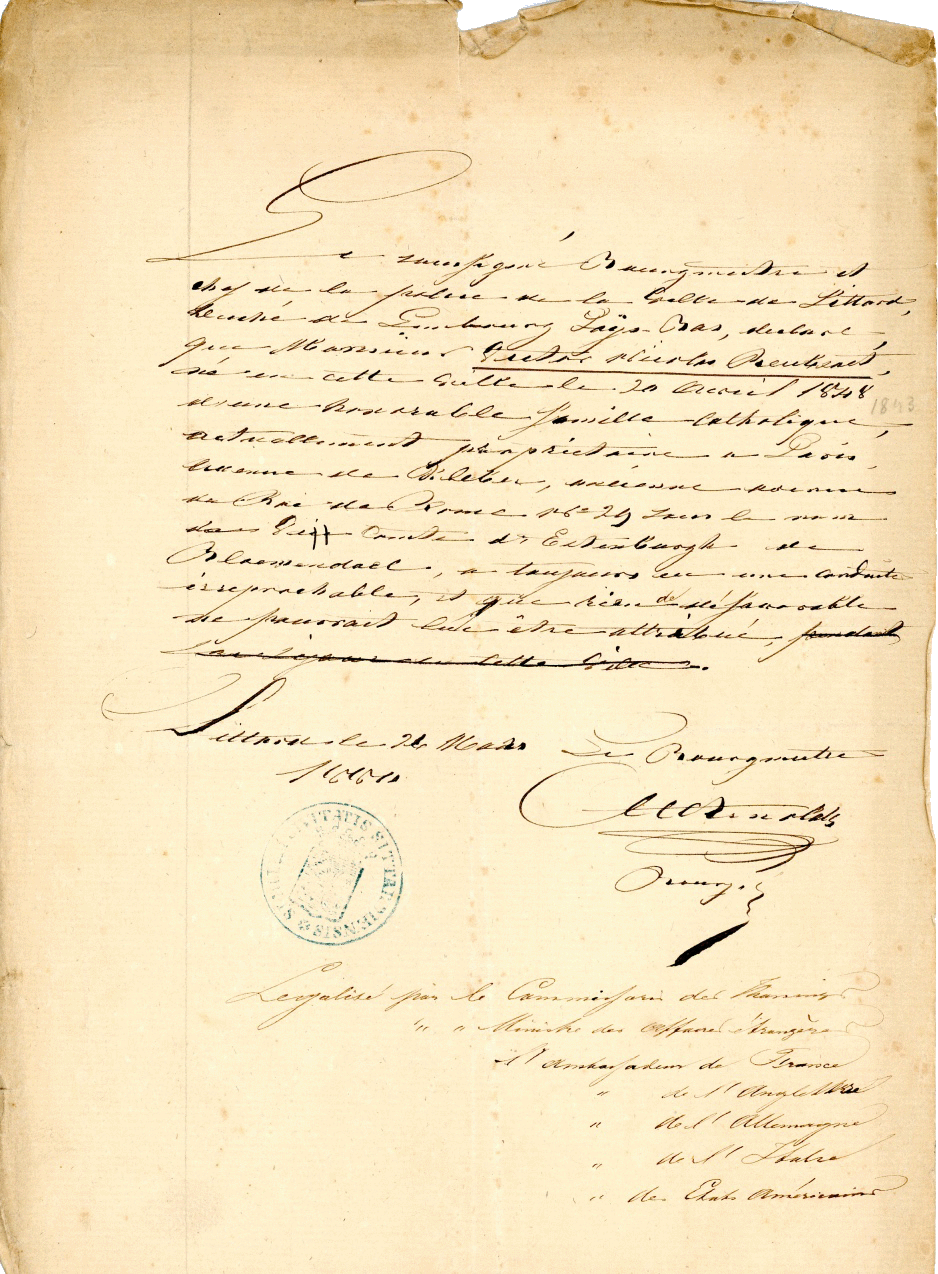 Le soussigné Bourgmestre et
chef de la police de la Ville de Sittard,
Duché de Limbourg Pays-Bas, declare,
que Monsieur Victor Nicolas Reubsaet,
né en cette ville le 20 Avril 1848
1843
d'une honorable famille catholique,
actuellement propriétaire a Paris,
avenue de Kleber, ancienne avenue
du Roi de Rome No 29 sous le nom
de Comte d'Estenburgh de
Bloemendael, a toujours eu une conduite
irreprochable, et que rien de défavorable
ne pourrait lui être attribué, pendant
cette Ville.
Sittard le 26 Mars
Le Bourgmestre
SCITATIS SITTARDIENSIS
Legalisé par le Commissaris des Konings
" " Ministre des Affaires étrangères
l'Ambassadeur de France
" de l'Angleterre
" de l'Allemagne
" de l'Italie
" des Etats Américains